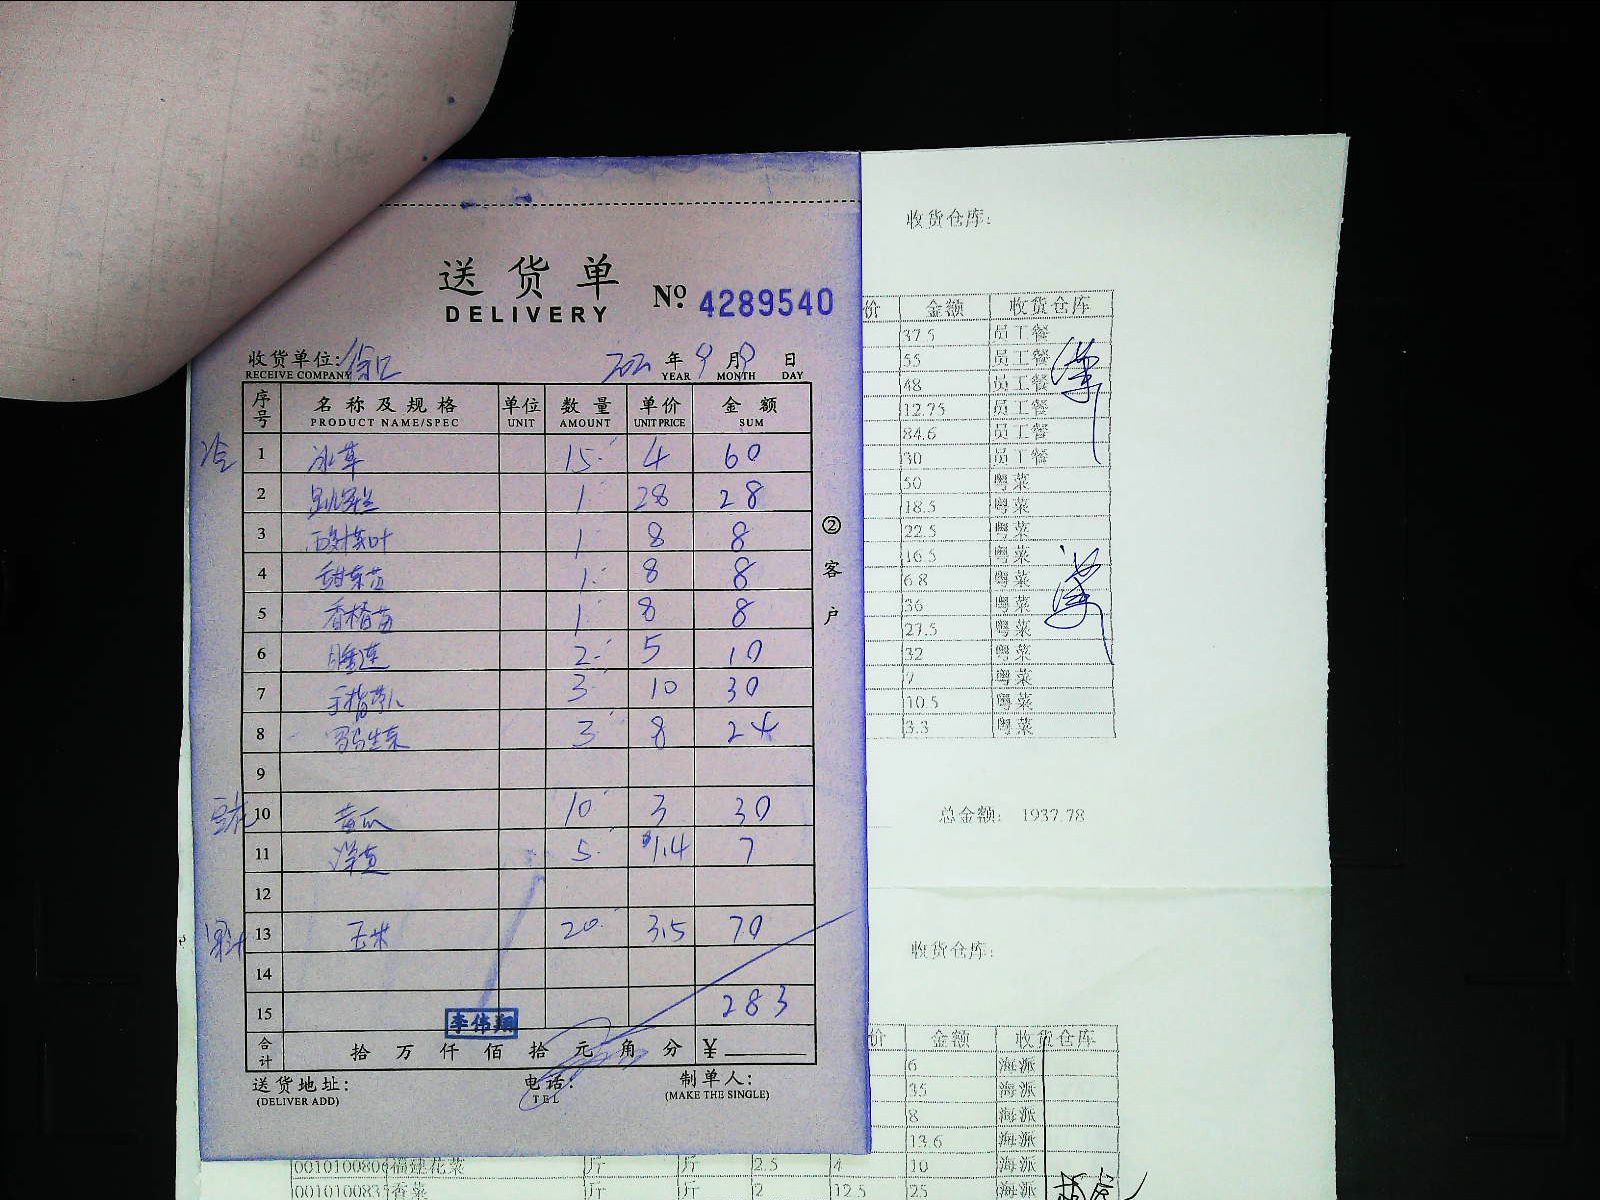 送货单
DELIVERY
№ 4289540
收货单位:徐汇
RECEIVE COMPANY
年 9 月 9 日
YEAR MONTH DAY
序号 名称及规格 单位 数量 单价 金额
PRODUCT NAME/SPEC UNIT AMOUNT UNIT PRICE SUM
1 冰草 15 4 60
2 1 28 28
3 1 8 8
4 1 8 8
5 香椿苗 1 8 8
6 2 5 10
7 3 10 30
8 罗马生菜 3 8 24
9
豆花 10 黄瓜 10 3 30
11 洋葱 5 1.4 7
12
13 玉米 20 3.5 70
14
15 283
李伟翔
合计 拾万仟佰拾元角分 ¥
送货地址:
(DELIVER ADD)
电话:
TEL
制单人:
(MAKE THE SINGLE)
② 客户
收货仓库:
价 金额 收货仓库
37.5 员工餐
55 员工餐
48 员工餐
12.75 员工餐
84.6 员工餐
30 员工餐
50 粤菜
18.5 粤菜
22.5 粤菜
16.5 粤菜
6.8 粤菜
36 粤菜
27.5 粤菜
32 粤菜
7 粤菜
10.5 粤菜
3.3 粤菜
总金额: 1937.78
收货仓库:
价 金额 收货仓库
6 海派
35 海派
8 海派
13.6 海派
0010100806 福建花菜 斤 斤 2.5 4 10 海派
0010100835 香菜 斤 斤 2 12.5 25 海派